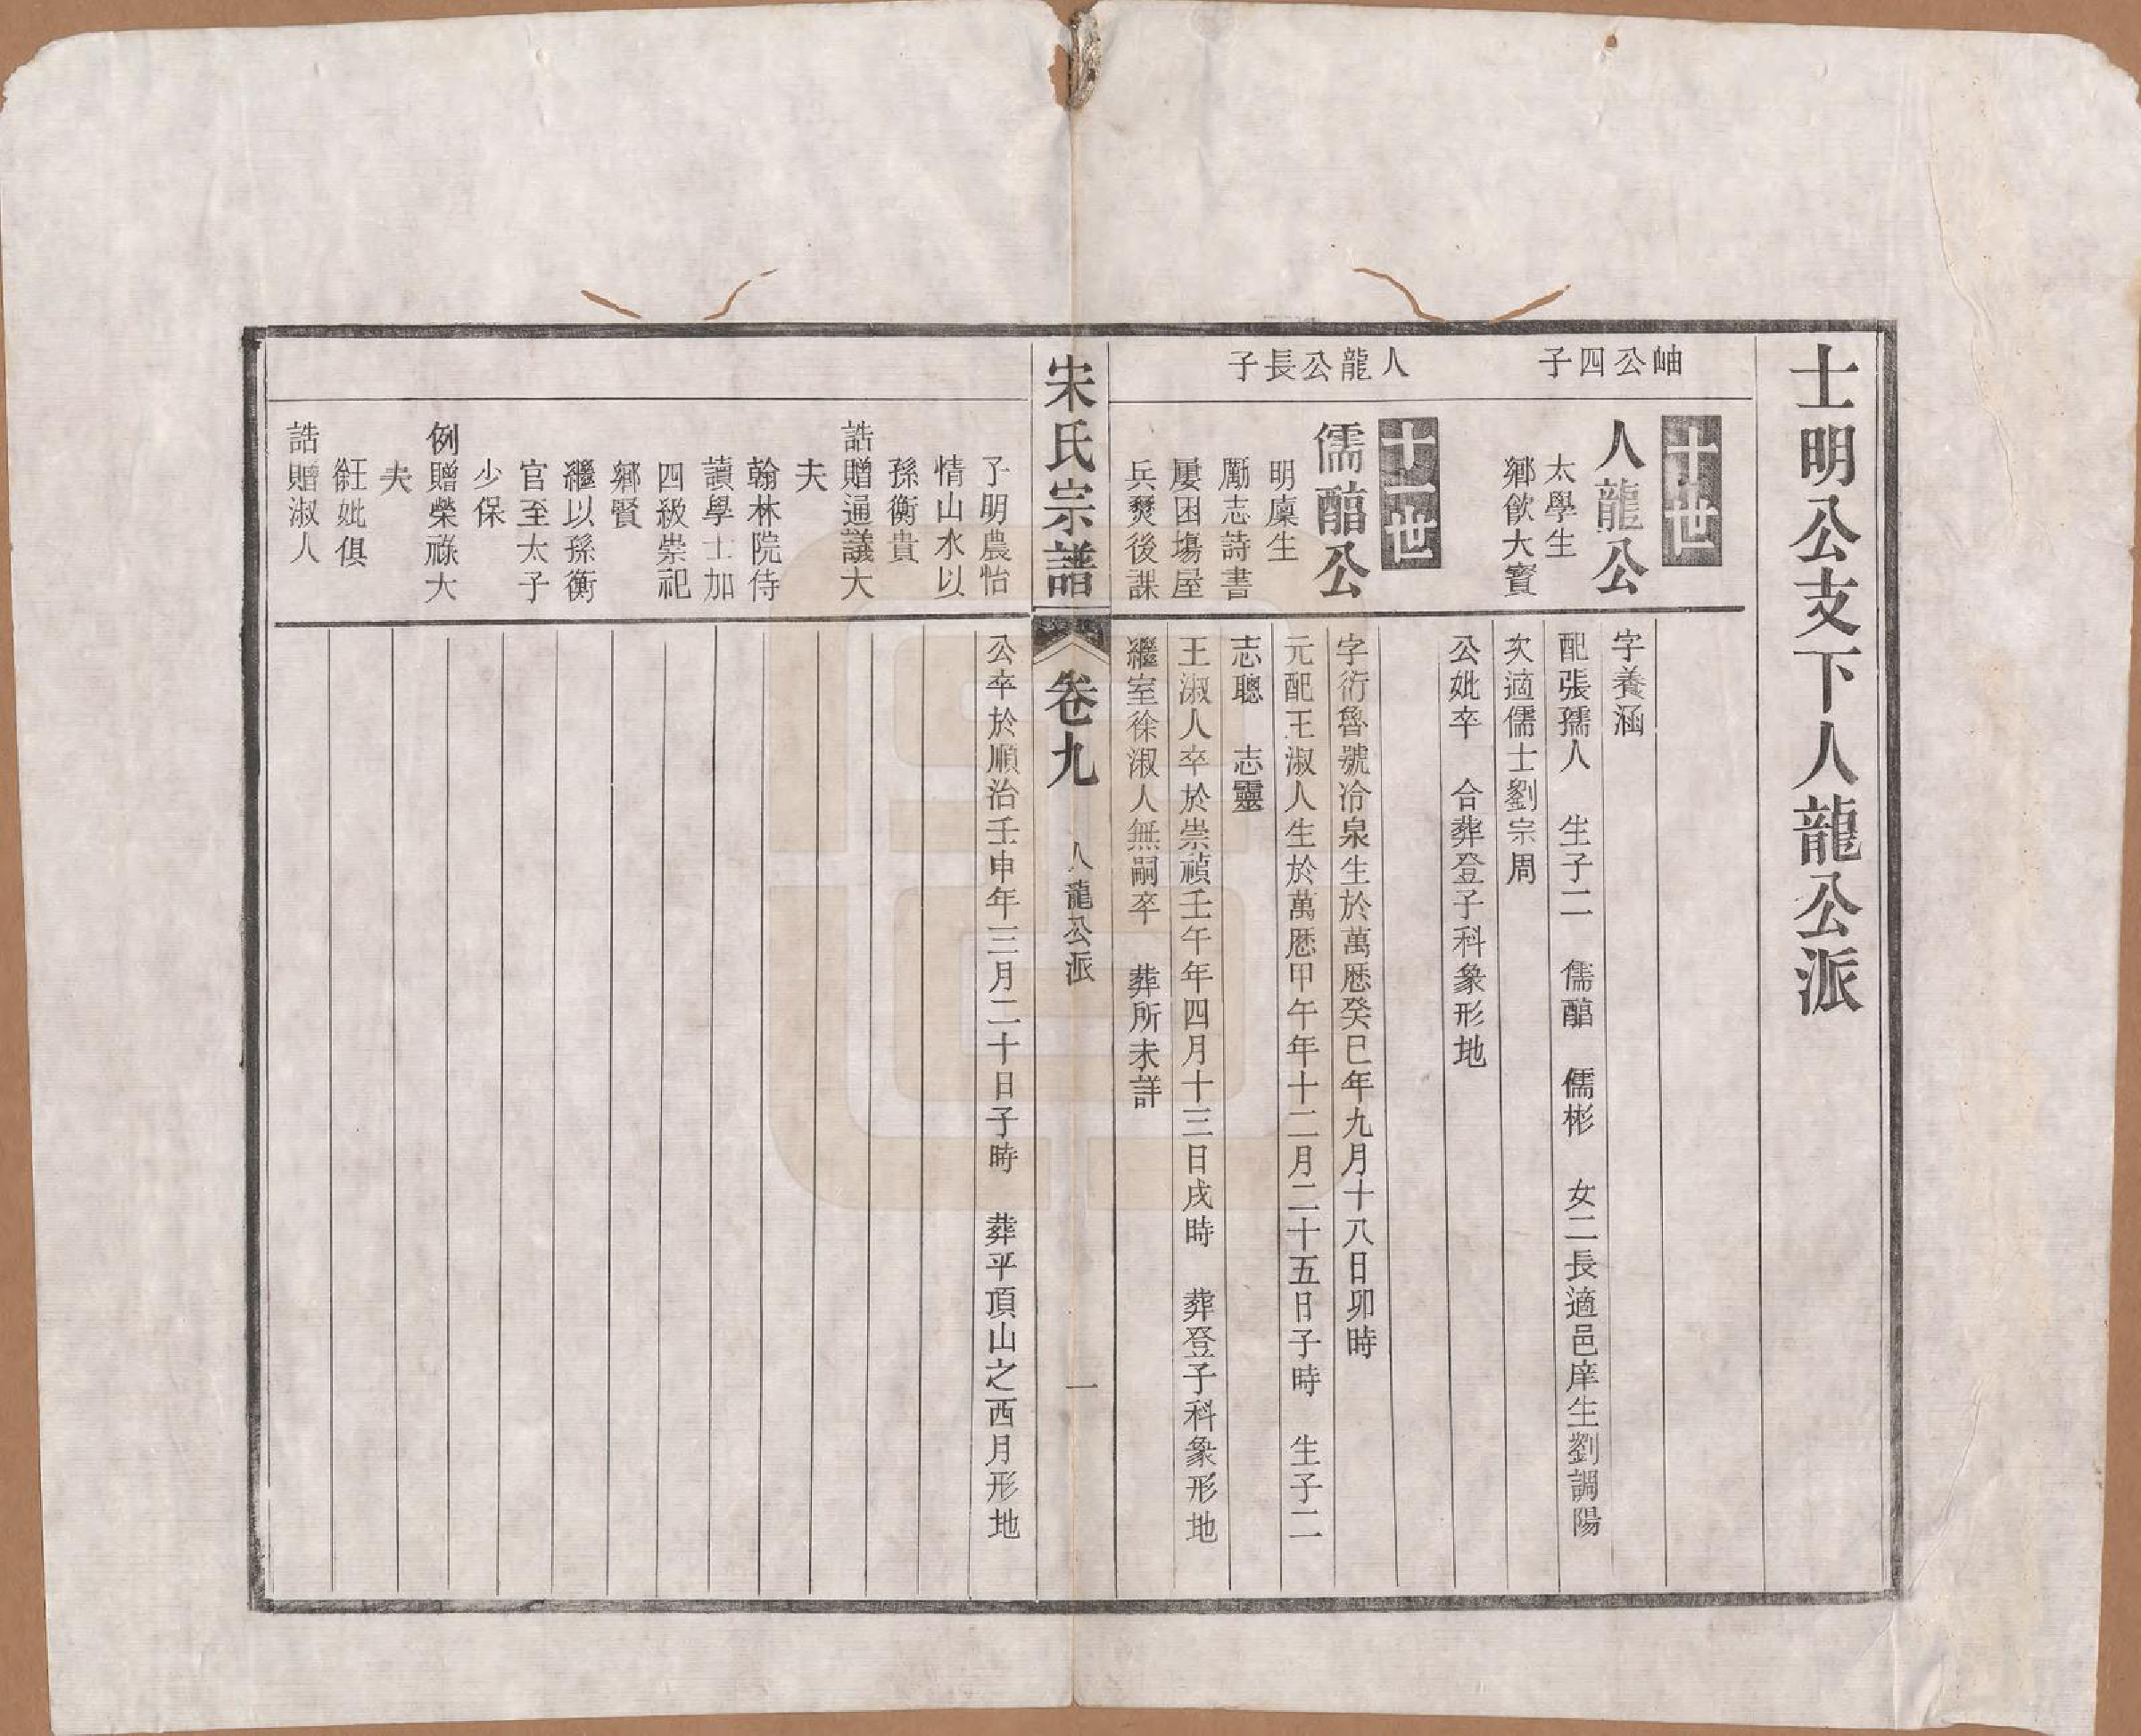 士明公支下人龍公派
岫公四子
十世
人龍公
太學生
鄉飲大賓
字養涵
配張孺人 生子二 儒醕 儒彬 女二長適邑庠生劉調陽
次適儒士劉宗周
公妣卒 合葬登子科象形地
人龍公長子
十一世
儒醕公
明廩生
勵志詩書
屢困塲屋
兵燹後課
字衍魯號冷泉生於萬厯癸巳年九月十八日卯時
元配王淑人生於萬厯甲午年十二月二十五日子時 生子二
志聰 志靈
王淑人卒於崇禎壬午年四月十三日戌時 葬登子科象形地
繼室徐淑人無嗣卒 葬所未詳
宋氏宗譜 卷九 人龍公派 一
子明農怡
情山水以
孫衡貴
誥贈通議大
夫
翰林院侍
讀學士加
四級崇祀
鄉賢
繼以孫衡
官至太子
少保
例贈榮祿大
夫
王妣俱
誥贈淑人
公卒於順治壬申年三月二十日子時 葬平頂山之西月形地